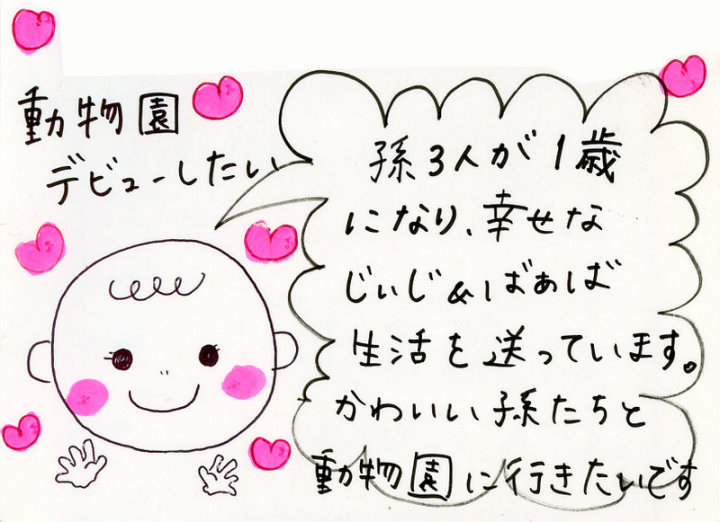 動物園
デビューしたい
孫3人が1歳
になり、幸せな
じぃじ&ばぁば
生活を送っています。
かわいい孫たちと
動物園に行きたいです